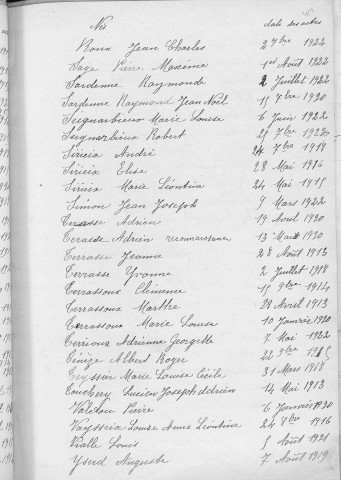 Nés date des actes
Roux Jean Charles 2 7bre 1922
Sage Pierre Maxime 1er Août 1922
Sardenne Raymonde 2 Juillet 1922
Sardenne Raymond Jean Noël 15 7bre 1920
Seignarbieux Marie Louise 6 Juin 1922
Seignarbieux Robert 29 7bre
Siriex André 24 7bre 1918
Siriex Elise 28 Mai 1916
Siriex Marie Léontine 24 Mai 1915
Simon Jean Joseph 9 Mars 1922
Terasse Adrien 19 Avril 1920
Terasse Adrien reconnaissance 13 1920
Terrasse Jeanne 28 Août 1913
Terrasse Yvonne 2 Juillet 1918
Terrassoux Clémence 15 9bre 1914
Terrassoux Marthe 28 Avril 1913
Terrassoux Marie Louise 10 Janvier 1920
Terrioux Adrienne Georgette 7 Mai 1922
Ténèze Albert Roger 22 9bre
Teyssier Marie Louise Cécile 31 Mars 1918
Touchery Lucien Joseph Adrien 14 Mai 1913
Valeton Pierre 6 Janvier 1920
Vaysseix Louise Anne Léontine 24 9bre 1916
Vialle Louis 5 Août 1921
Yserd Auguste 7 Août 1919